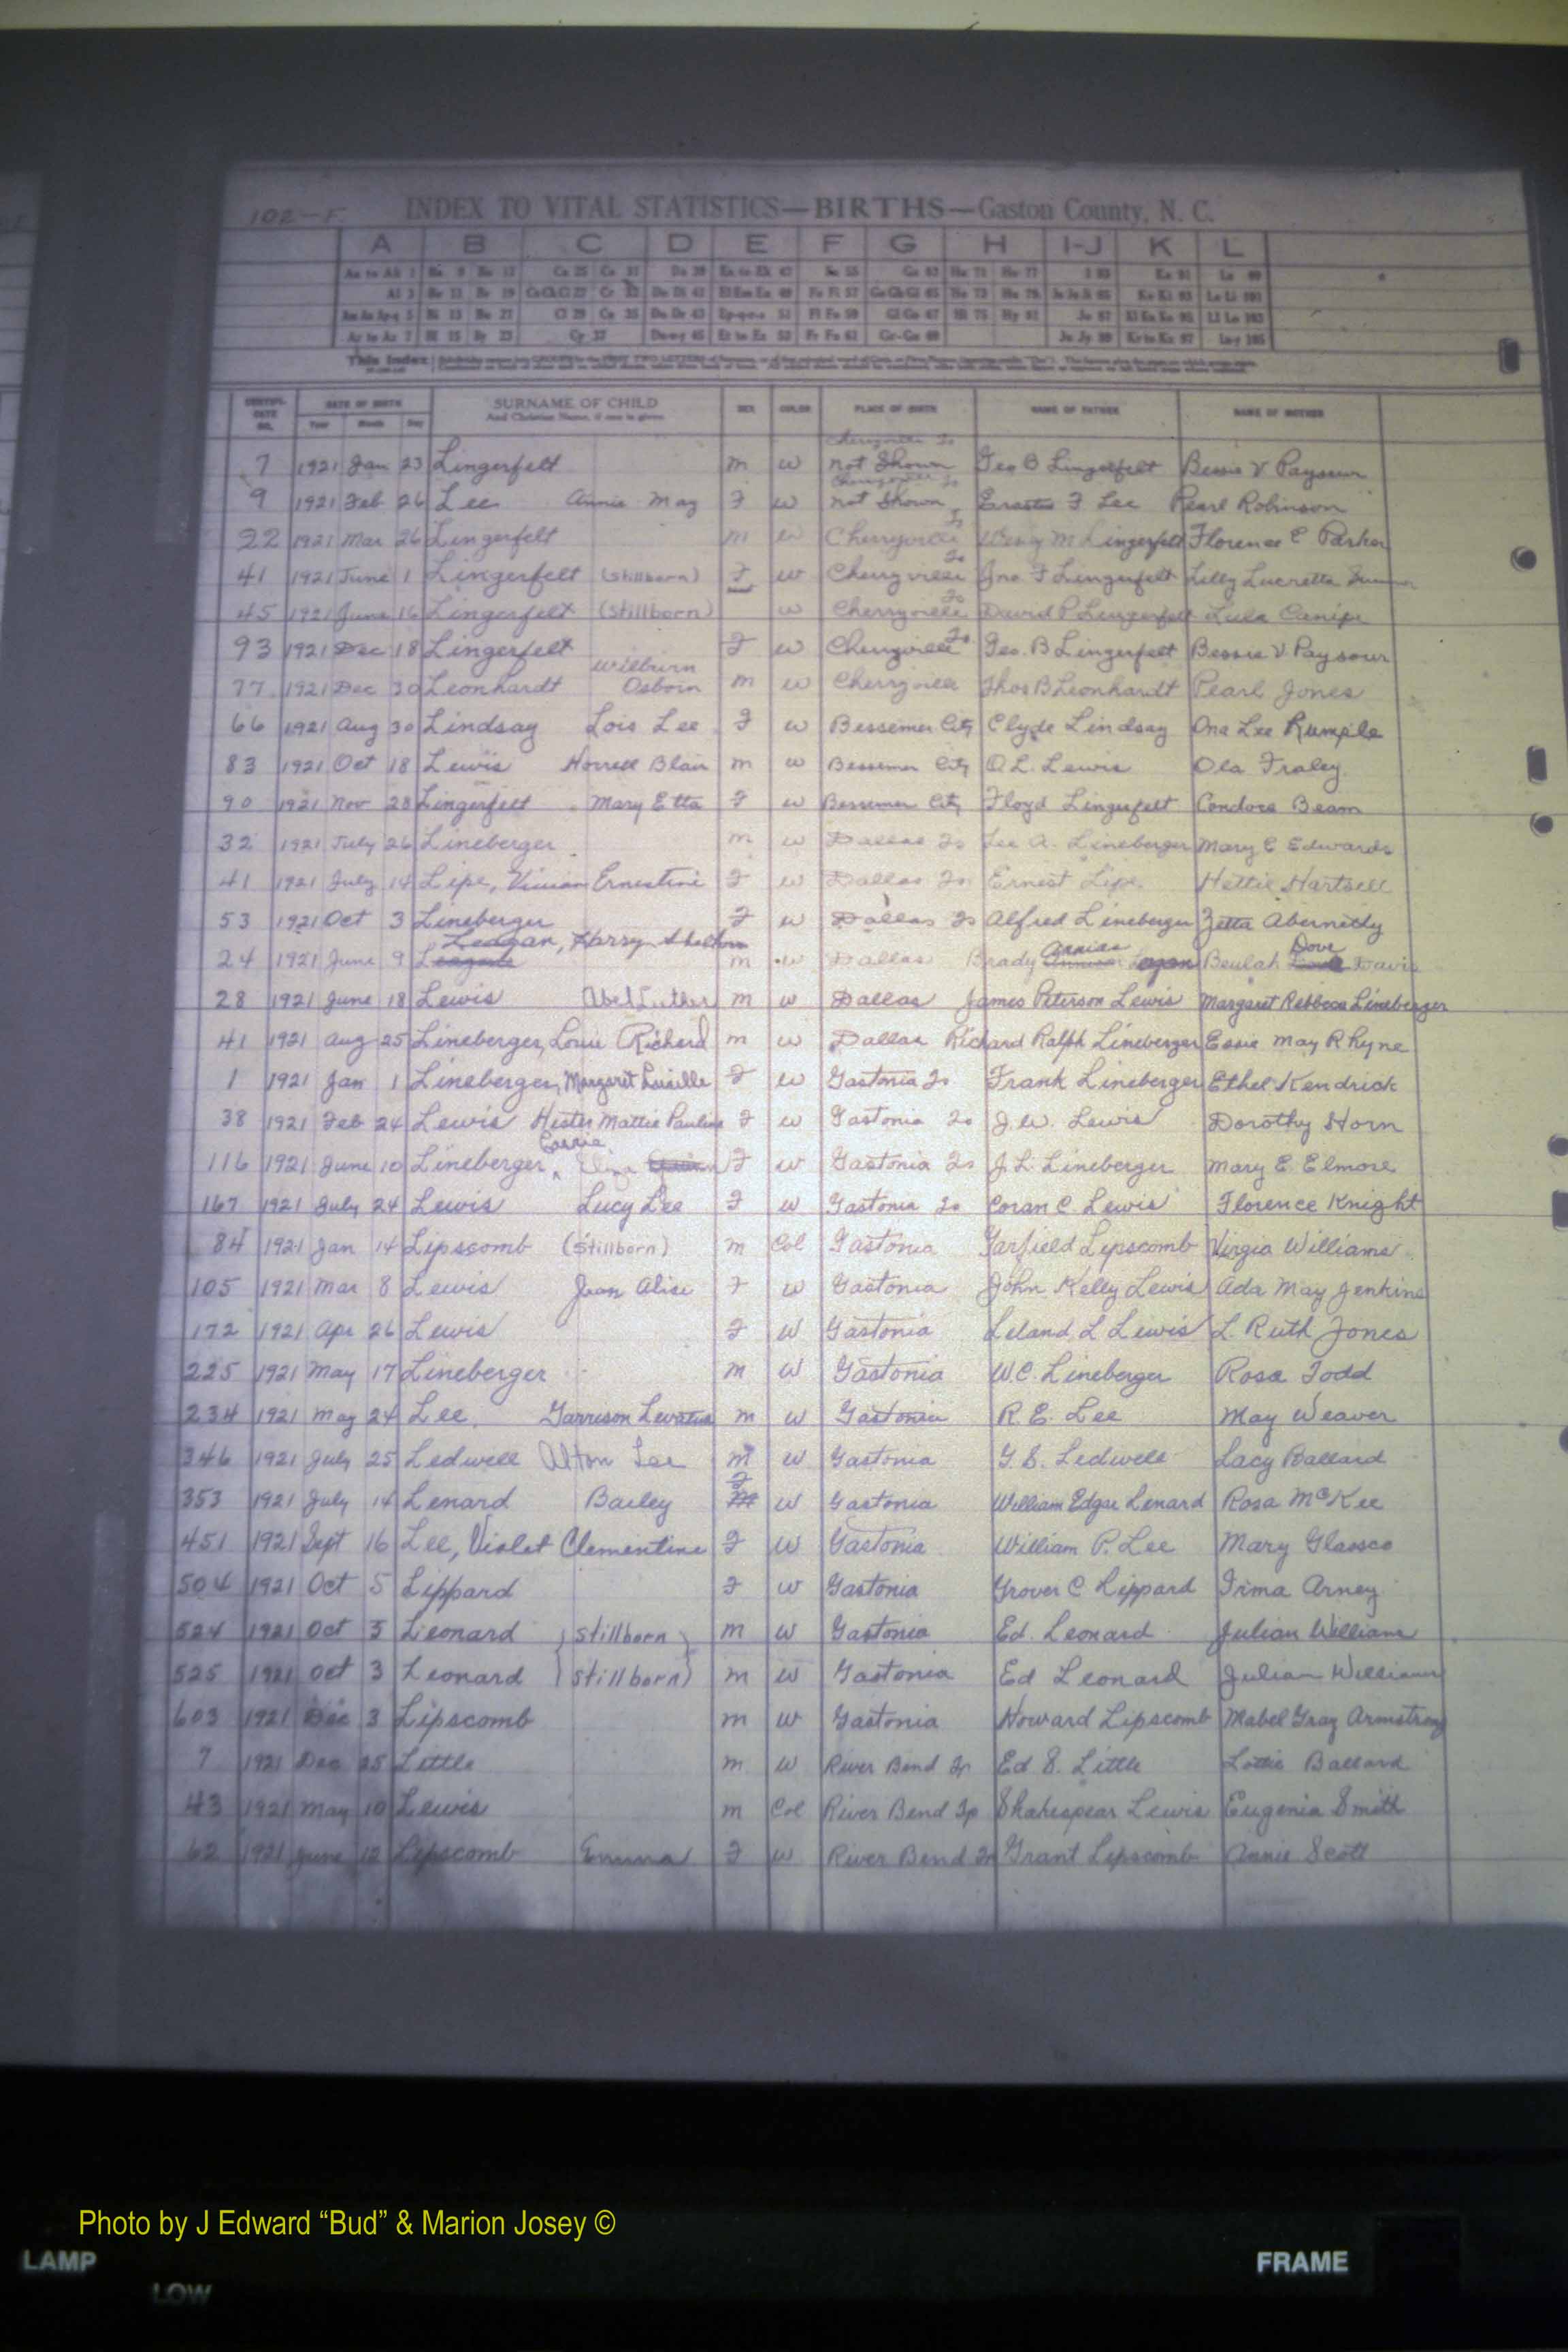 102-F INDEX TO VITAL STATISTICS—BIRTHS—Gaston County, N. C.
A B C D E F G H I-J K L
This Index
DATE OF BIRTH SURNAME OF CHILD SEX COLOR PLACE OF BIRTH NAME OF FATHER NAME OF MOTHER
Year Month Day And Christian Name, if one is given
Cherryville To
7 1921 Jan 23 Lingerfelt m w not Shown Geo B Lingerfelt Bessie V Paysour
Cherryville To
9 1921 Feb 26 Lee Annie May F w not Shown Erastus F Lee Pearl Robinson
22 1921 Mar 26 Lingerfelt m w Cherryville To M Lingerfelt Florence E Parker
41 1921 June 1 Lingerfelt (stillborn) F w Cherryville To Jno F Lingerfelt Lilly Lucretta
45 1921 June 16 Lingerfelt (stillborn) w Cherryville To David P Lingerfelt Lula Canipe
93 1921 Dec 18 Lingerfelt F w Cherryville To Geo. B Lingerfelt Bessie V Paysour
77 1921 Dec 30 Leonhardt Wilburn Osborn m w Cherryville Thos B Leonhardt Pearl Jones
66 1921 Aug 30 Lindsay Lois Lee F w Bessemer City Clyde Lindsay Ona Lee Rumple
83 1921 Oct 18 Lewis Horrell Blair m w Bessemer City O. L. Lewis Ola Fraley
90 1921 Nov 28 Lingerfelt Mary Etta F w Bessemer City Floyd Lingerfelt Condora Beam
32 1921 July 26 Lineberger m w Dallas To Lee A. Lineberger Mary E Edwards
41 1921 July 14 Lipe, Vivian Ernestine F w Dallas To Ernest Lipe Hettie Hartsell
53 1921 Oct 3 Lineberger F w Dallas To Alfred Lineberger Zetta Abernethy
24 1921 June 9 Leagan, Harry m w Dallas Brady Beulah Dove Davis
28 1921 June 18 Lewis Abel Luther m w Dallas James Peterson Lewis Margaret Rebbecca Lineberger
41 1921 Aug 25 Lineberger, Louie Richard m w Dallas Richard Ralph Lineberger Essie May Rhyne
1 1921 Jan 1 Lineberger, Margaret Lucille F w Gastonia To Frank Lineberger Ethel Kendrick
38 1921 Feb 24 Lewis Hester Mattie Pauline F w Gastonia To J. W. Lewis Dorothy Horn
116 1921 June 10 Lineberger, Carrie Eliza F w Gastonia To J. L. Lineberger Mary E. Elmore
167 1921 July 24 Lewis Lucy Lee F w Gastonia To Coran C Lewis Florence Knight
84 1921 Jan 14 Lipscomb (Stillborn) m Col Gastonia Garfield Lipscomb Virgia Williams
105 1921 Mar 8 Lewis Jean Alice F w Gastonia John Kelly Lewis Ada May Jenkins
172 1921 Apr 26 Lewis F W Gastonia Leland L Lewis L. Ruth Jones
225 1921 May 17 Lineberger m W Gastonia W. C. Lineberger Rosa Todd
234 1921 May 24 Lee Garrison m W Gastonia R. E. Lee May Weaver
346 1921 July 25 Ledwell Alton Lee m w Gastonia G. S. Ledwell Lacy Ballard
353 1921 July 14 Lenard Bailey F W Gastonia William Edgar Lenard Rosa McKee
451 1921 Sept 16 Lee, Violet Clementine F W Gastonia William P. Lee Mary Glassco
504 1921 Oct 5 Lippard F W Gastonia Grover C Lippard Irma Arney
524 1921 Oct 3 Leonard (stillborn) m W Gastonia Ed. Leonard Julian Williams
525 1921 Oct 3 Leonard (stillborn) m W Gastonia Ed Leonard Julian Williams
603 1921 Dec 3 Lipscomb m W Gastonia Howard Lipscomb Mabel Gray Armstrong
7 1921 Dec 25 Little m W River Bend Tp Ed S. Little Lottie Ballard
43 1921 May 10 Lewis m Col River Bend Tp Shakespear Lewis Eugenia Smith
62 1921 June 12 Lipscomb Emma F W River Bend Tp Grant Lipscomb Annie Scott
Photo by J Edward “Bud” & Marion Josey ©
LAMP FRAME
LOW